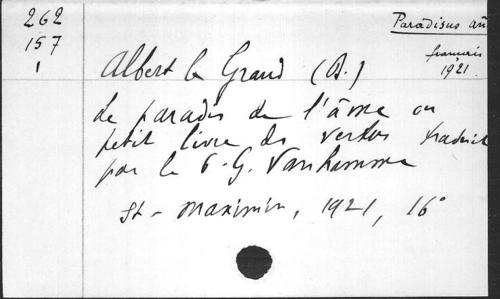 262
157
1
Paradisus an
français
1921.
Albert le Grand (B.)
Le paradis de l'âme ou
petit livre des vertus traduit
par le P. G. Vanhamme
St-Maximin, 1921, 16°